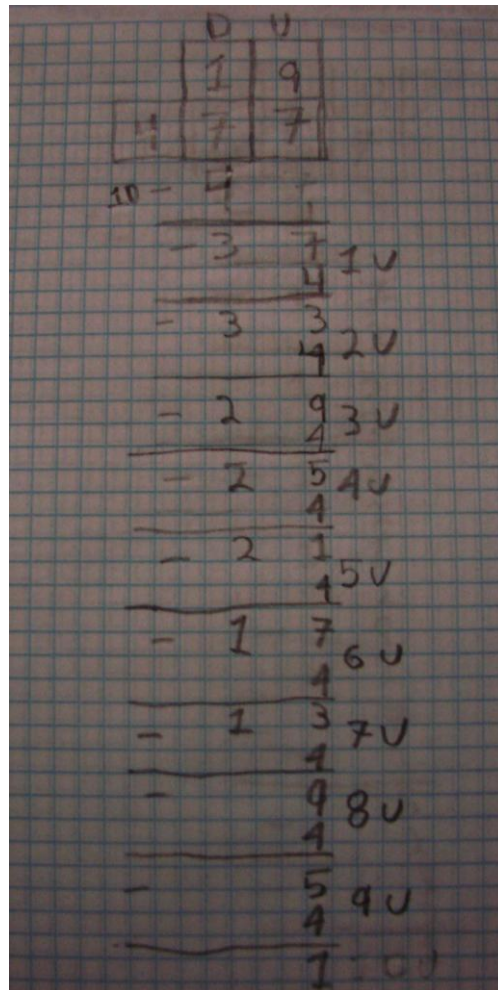 D U
1 9
4 7 7
1D - 4
- 3 7
4 1U
- 3 3
4 2U
- 2 9
4 3U
- 2 5
4 4U
- 2 1
4 5U
- 1 7
4 6U
- 1 3
4 7U
- 9
4 8U
- 5
4 9U
1